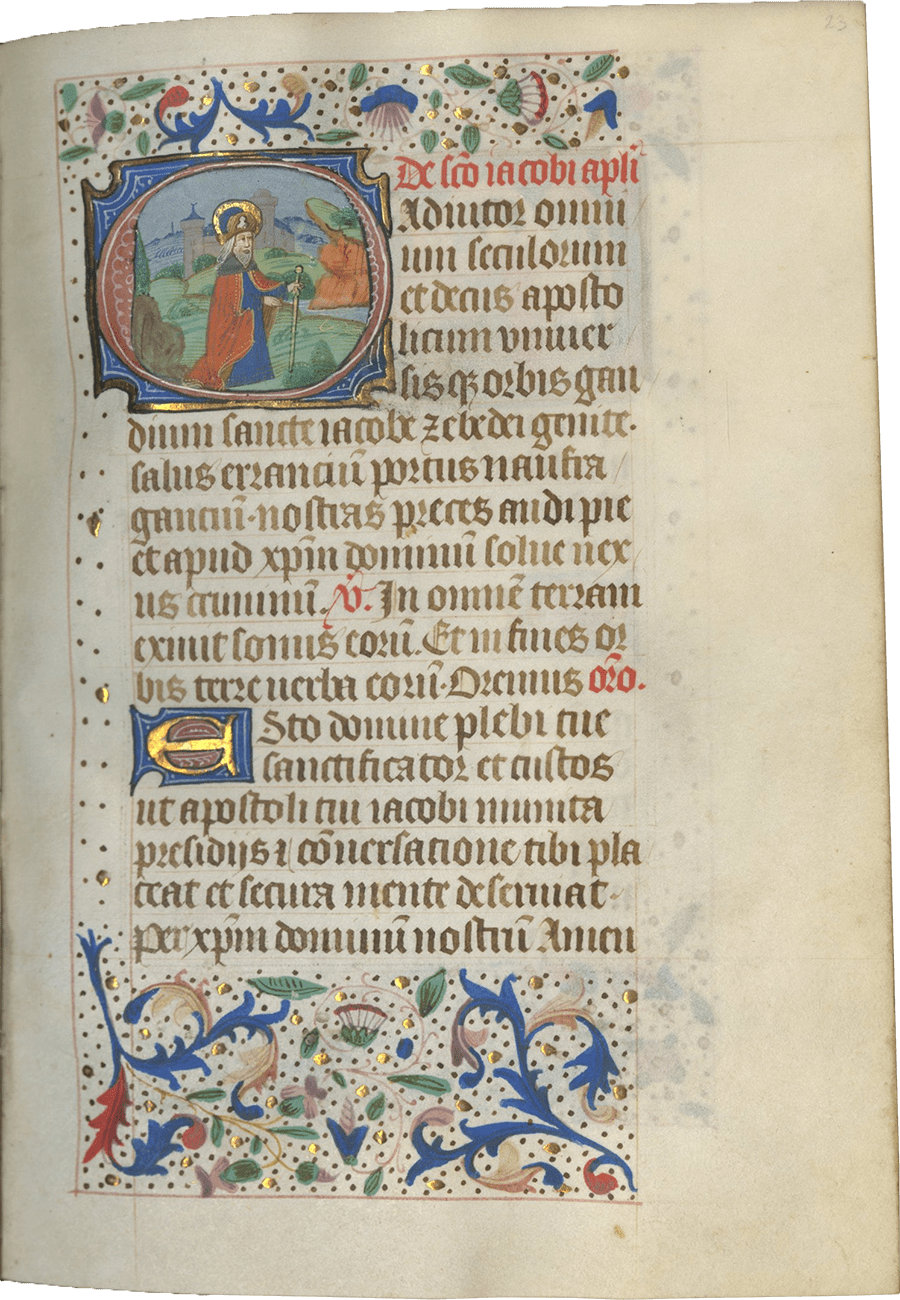 23
De sc̄o iacobi apl̄i
Adiutor omni
um seculorum
et decus aposto
licum vniuer
sisqꝫ orbis gau
dium sancte iacobe zebedei genite.
salus erranciū portus naufra
ganciū. nostras preces audi pie
et apud xp̄m dominū solue nex
us criminū. v̄. In omnē terram
exiuit sonus eorū. Et in fines or
bis terre uerba eorū. Oremus or̄o.
Esto domine plebi tue
sanctificator et custos
ut apostoli tui iacobi munita
presidijs ⁊ cōuersatione tibi pla
ceat et secura mente deseruiat.
Per xp̄m dominū nostrū Amen